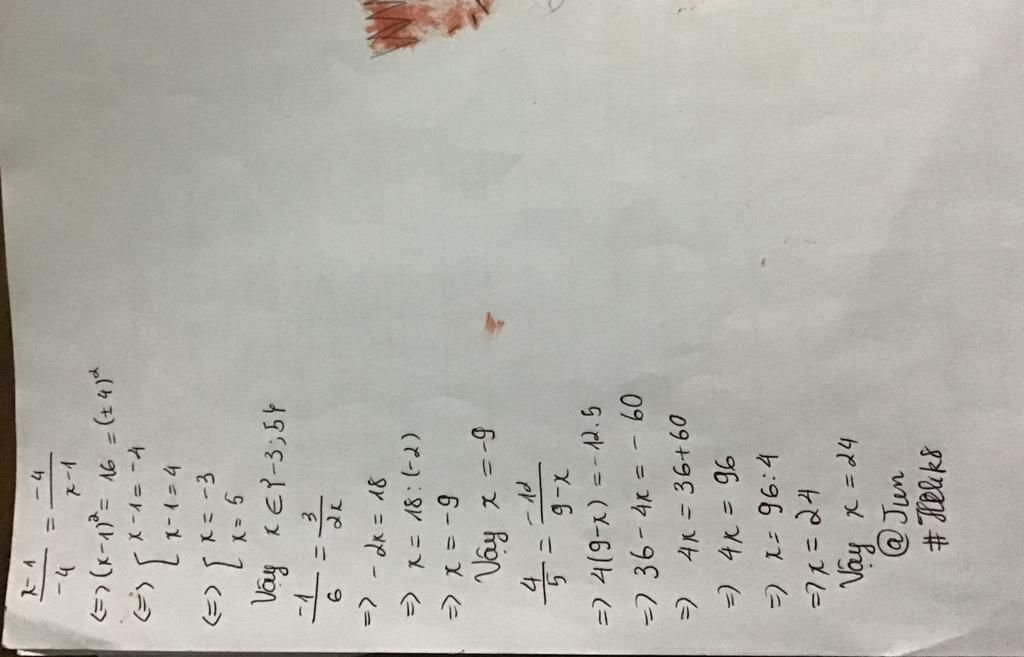 x-1/-4 = -4/x-1
(=) (x-1)² = 16 = (±4)²
(=) [ x-1 = -4
[ x-1 = 4
(=) [ x = -3
[ x = 5
Vậy x ∈ {-3;5}
-1/6 = 3/2x
=) -2x = 18
=) x = 18:(-2)
=) x = -9
Vậy x = -9
4/5 = -12/9-x
=) 4(9-x) = -12.5
=) 36 - 4x = -60
=) 4x = 36+60
=) 4x = 96
=) x = 96:4
=) x = 24
Vậy x = 24
@Jun